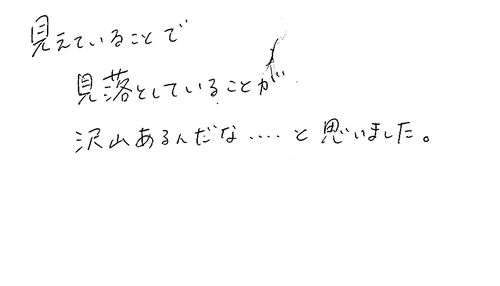 見えていることで
見落としていることが
沢山あるんだな‥‥と思いました。